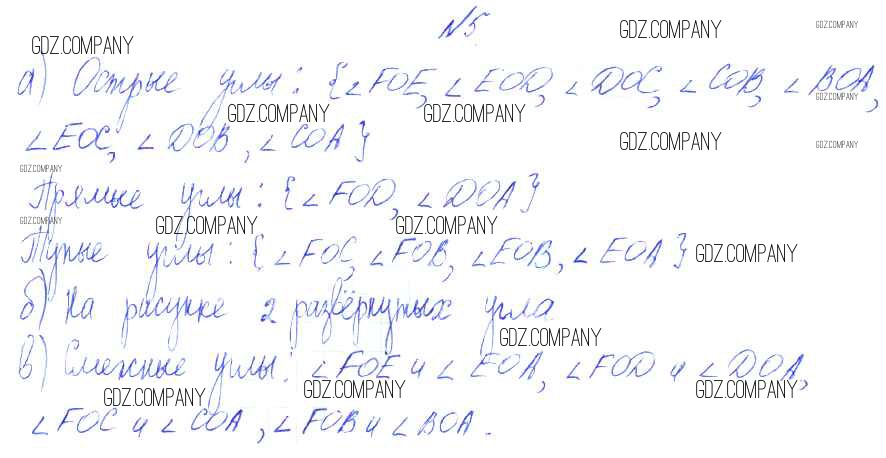 №5
GDZ.COMPANY GDZ.COMPANY GDZ.COMPANY
а) Острые углы: {∠FOE, ∠EOD, ∠DOC, ∠COB, ∠BOA,
GDZ.COMPANY GDZ.COMPANY GDZ.COMPANY
∠EOC, ∠DOB, ∠COA}
GDZ.COMPANY GDZ.COMPANY
GDZ.COMPANY
Прямые углы: {∠FOD, ∠DOA}
GDZ.COMPANY GDZ.COMPANY GDZ.COMPANY
Тупые углы: {∠FOC, ∠FOB, ∠EOB, ∠EOA}
GDZ.COMPANY
б) На рисунке 2 развёрнутых угла.
GDZ.COMPANY
в) Смежные углы: ∠FOE и ∠EOA, ∠FOD и ∠DOA,
GDZ.COMPANY GDZ.COMPANY GDZ.COMPANY
∠FOC и ∠COA, ∠FOB и ∠BOA.